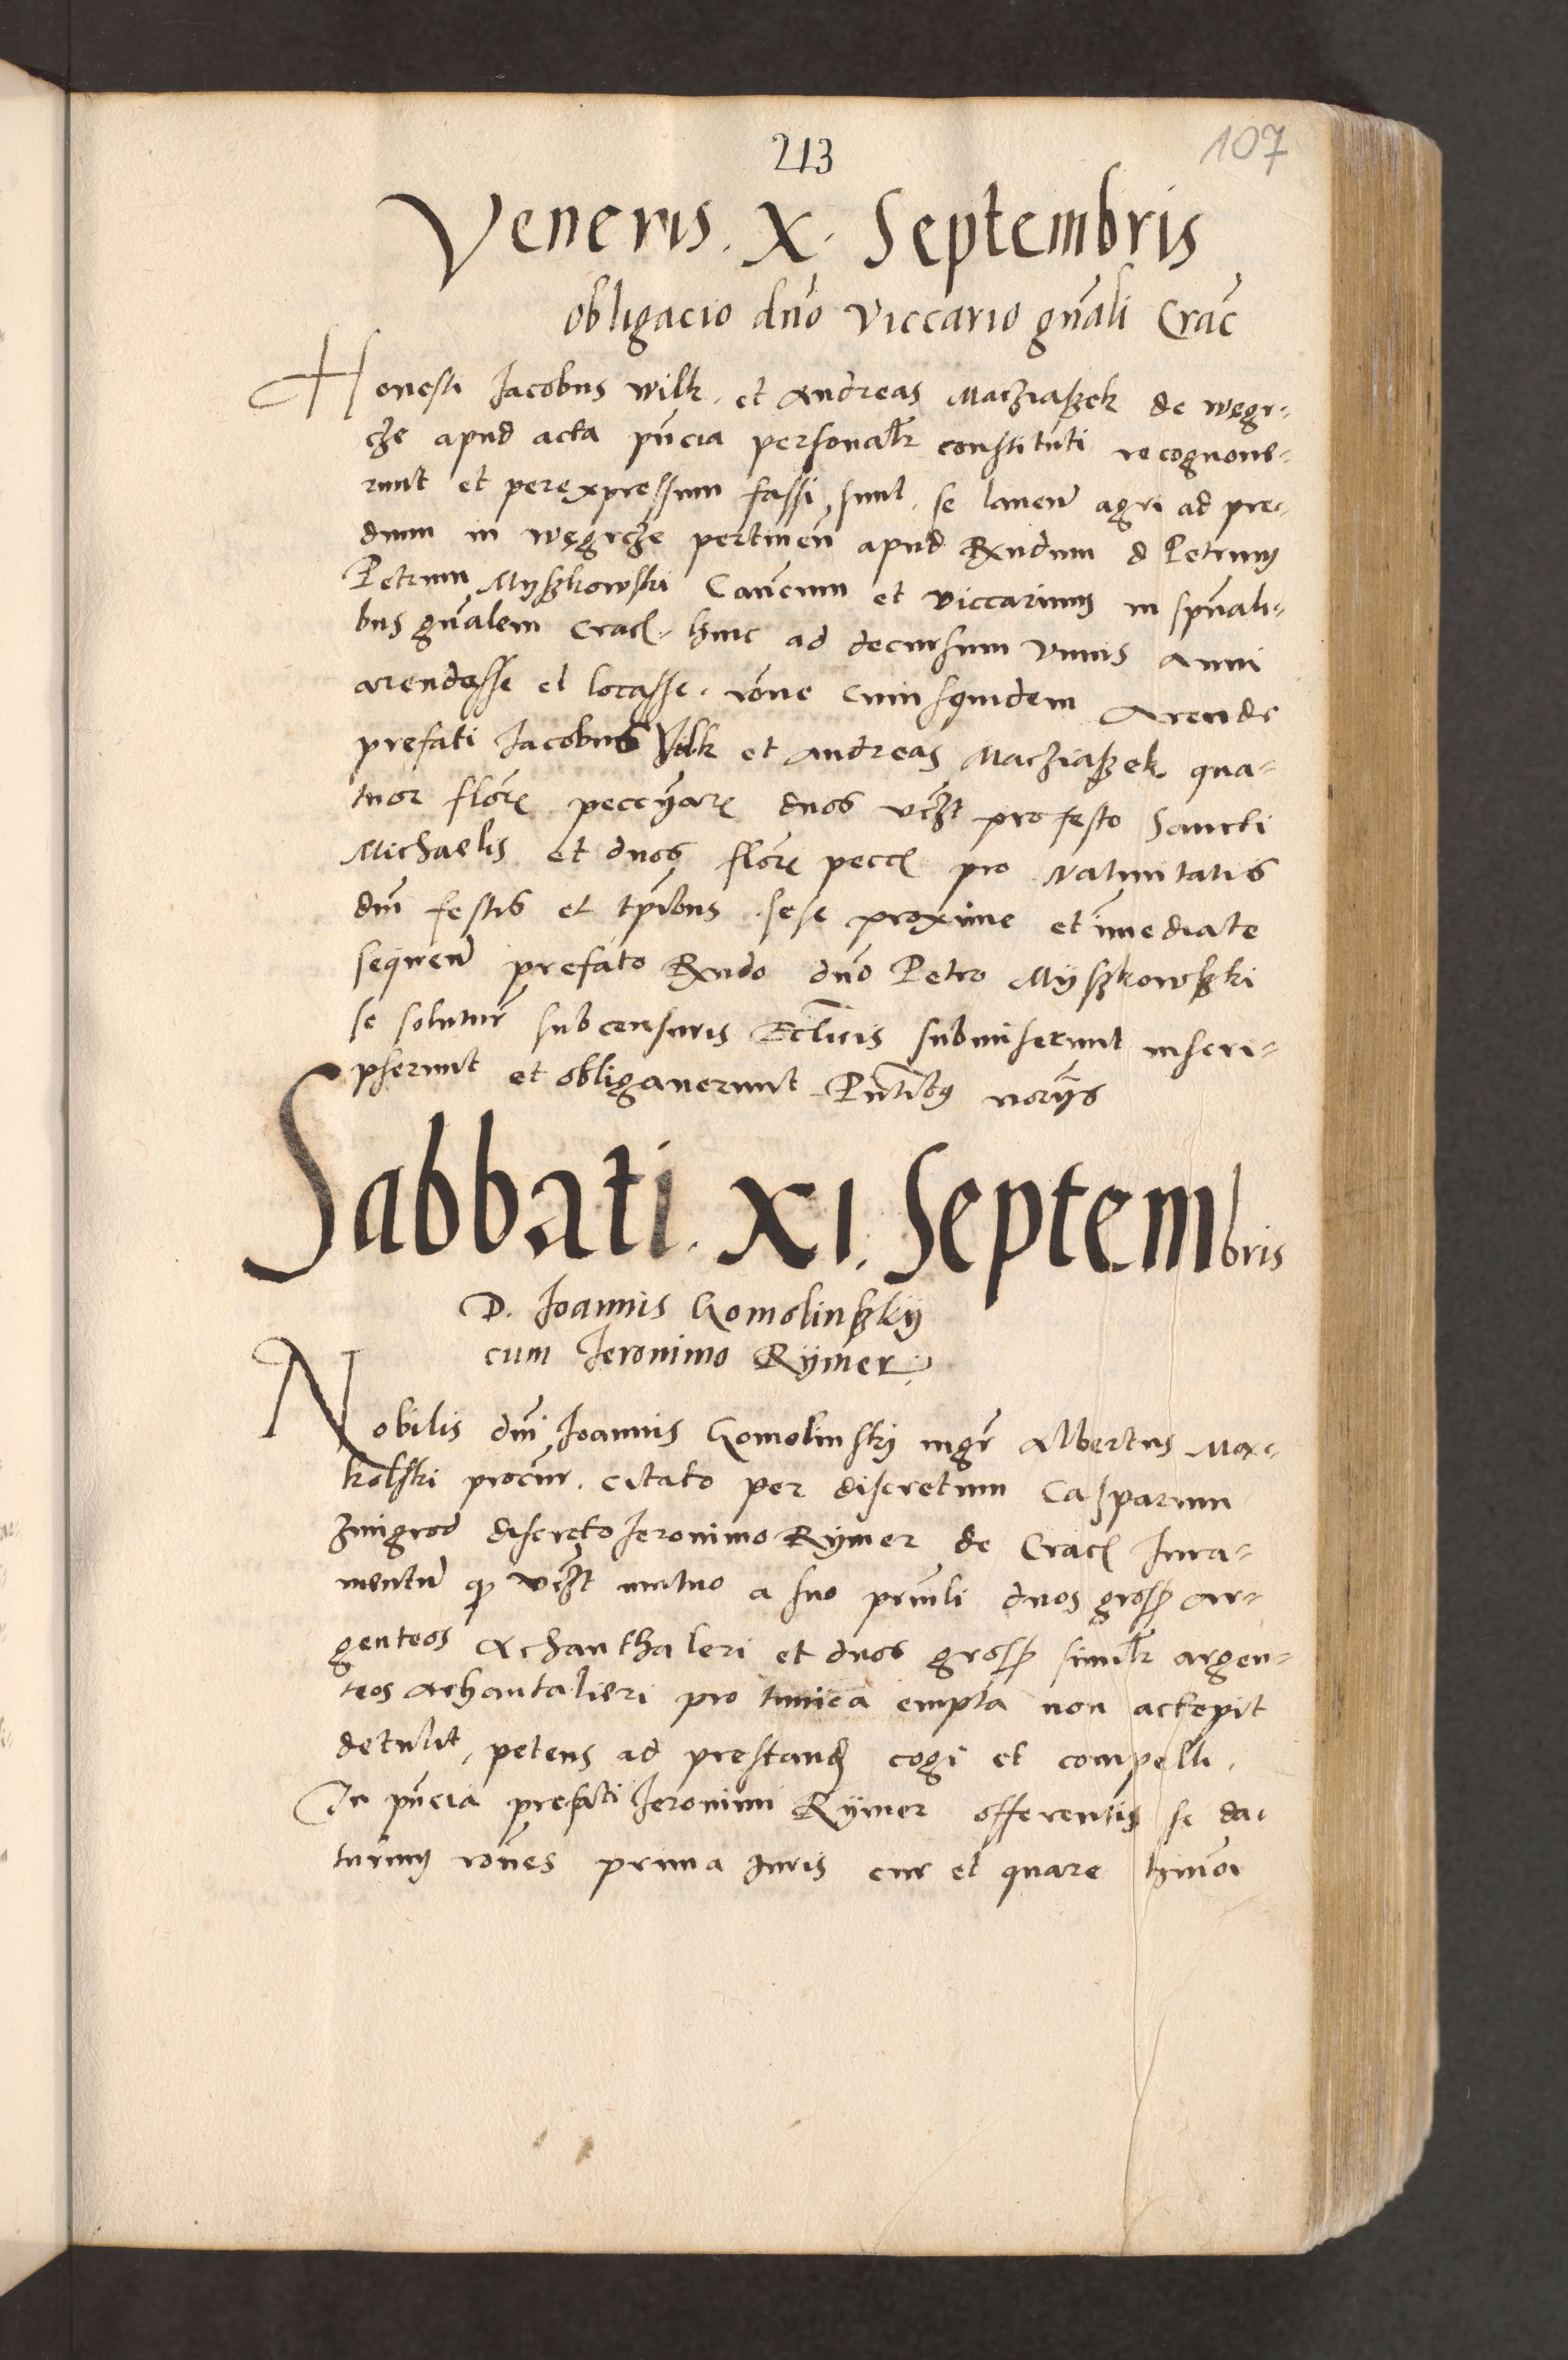 213
107
Veneris . X . Septembris
obligacio dño viccario gñali Crac̃
Honesti Jacobus wilk . et Andreas Macziaszek de węgr-
cze apud acta pñcia personalr̃ constituti recognove-
runt et perexpressum fassi sunt . se laneũ agri ad pre-
dium in węgrcze pertineñ apud Rxndum d Petrum
Petrum Myszkowski Cañcum et viccarium in spũali-
bus gñalem Crac. hinc ad decursum unius anni
arendasse et locasse . rõne cuiusquidem Arende
prefati Jacobus Vilk et Andreas Macziaszek qua-
tuor flor̃ peccũar̃ duos vczt pro festo Sancti
Michaelis et duos flor̃ pecc̃ pro Nativitatis
dñi festis et tp̃ibus sese proxime et im̃ediate
sequeñ prefato Rxndo dño Petro Myszkowszki
se solutur̃ sub censuris Eccl̃icis submiserunt inscri-
pserunt et obligaverunt Pñtibus norÿs
Sabbati . XI . Septembris
D. Joannis Gomolinszky
cum Jeronimo Rÿmer
Nobilis dñi Joannis Gomolinsky mgr̃ Albertus Mox-
kolski procur. citato per discretum Casparum
Zmigrod discreto Jeronimo Rÿmer de Crac Jura-
mentũ qz vczt mutuo a suo prĩnli duos gross ar-
genteos Achanthaleri et duos gross similr̃ argen-
teos Achantalieri pro tunica empta non accepit
detulit, petens ad prestand̃ cogi et compelli.
In pñcia prefati Jeronimi Rÿmer offerentis se da-
turum rõnes prima Juris cur et quare hmõi